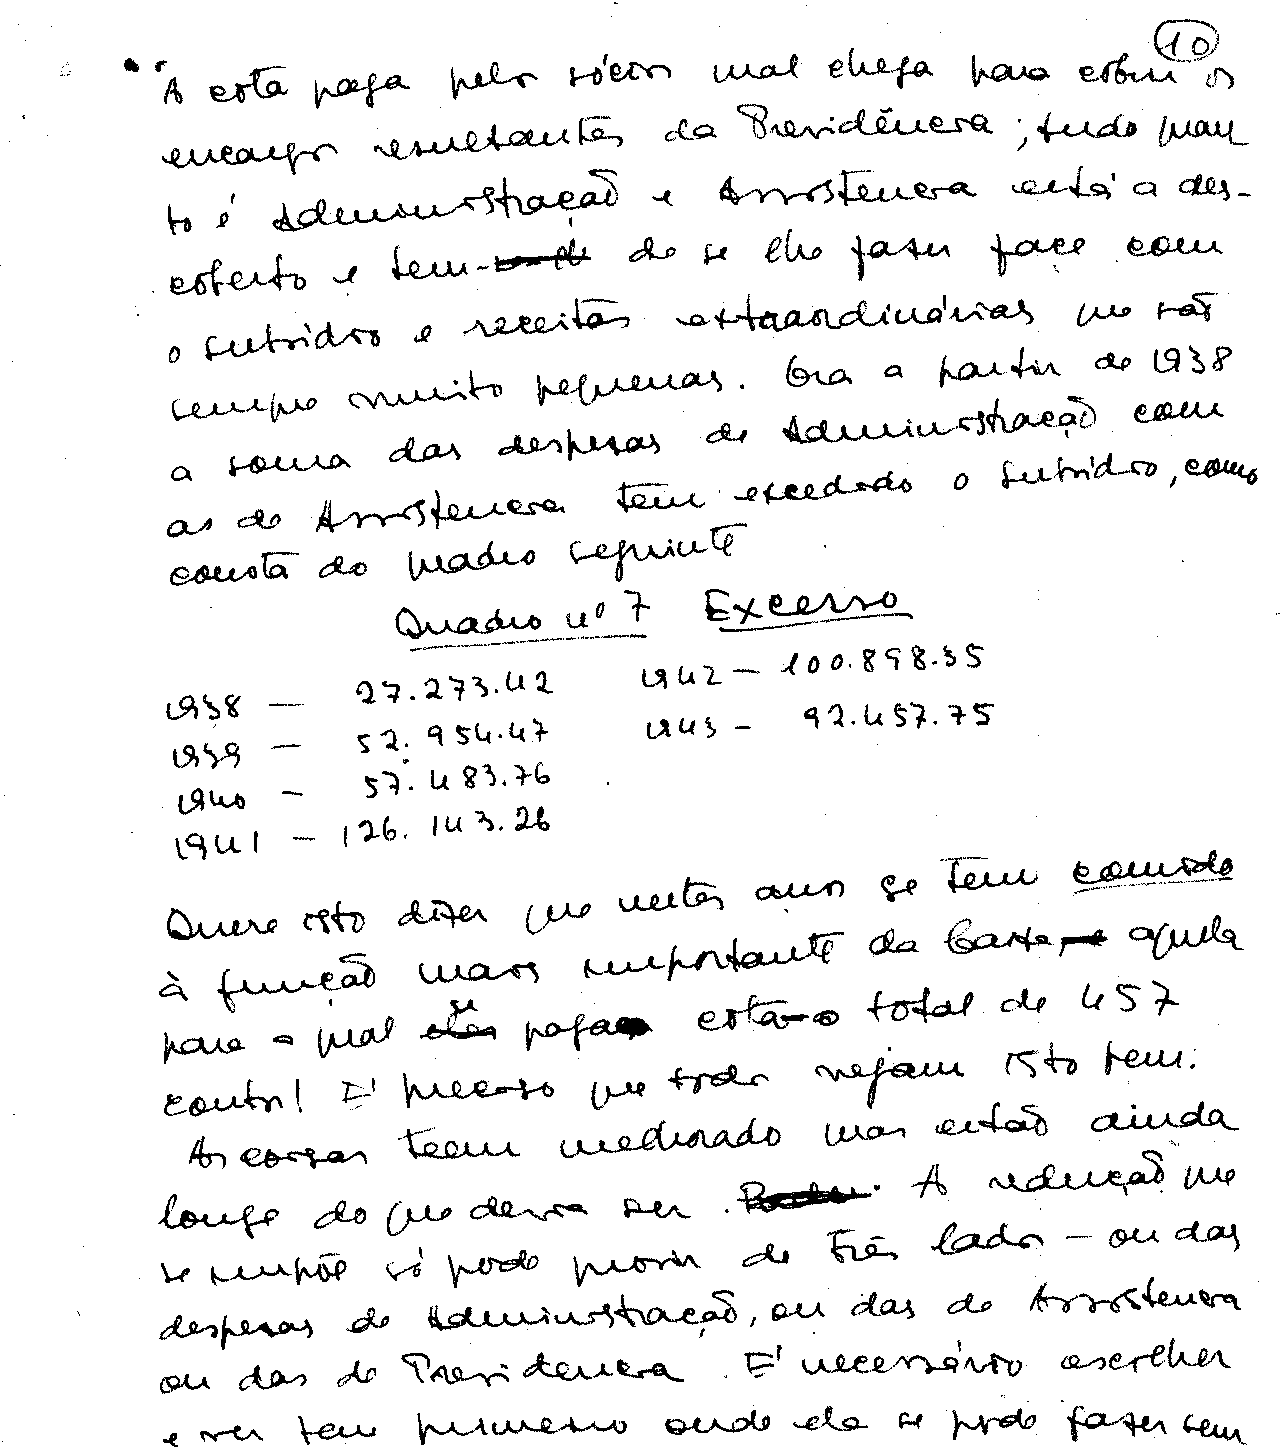 10
A cota paga pelos sócios mal chega para cobrir os
encargos resultantes da Previdência; tudo quan
to é Administração e Assistencia está a des-
coberto e tem- de se lhe fazer face com
o subsídio e receitas extraordinárias que são
sempre muito pequenas. Ora a partir de 1938
a soma das despesas de Administração com
as de Assistencia têm excedido o subsídio, como
consta do quadro seguinte
Quadro nº 7 Excesso
1938 — 27.273.42 1942 — 100.898.35
1939 — 52.954.47 1943 - 92.457.75
1940 — 57.483.76
1941 — 126.143.26
Quere isto dizer que nestes anos se tem comido
à função mais importante da Caixa, aquela
para a qual se paga cota o total de 457
contos! É preciso que todos vejam isto bem.
As coisas teem melhorado mas estão ainda
longe do que devia ser. A redução que
se impõe só pode provir de três lados — ou das
despesas de Administração, ou das de Assistencia
ou das de Previdencia. É necessário escolher
e ver bem primeiro onde ela se pode fazer sem